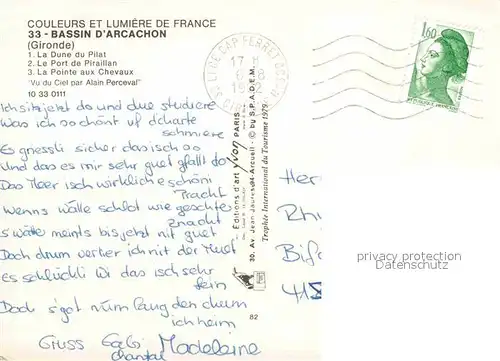 COULEURS ET LUMIÈRE DE FRANCE
33 - BASSIN D'ARCACHON
(Gironde)
1. La Dune du Pilat
2. Le Port de Piraillan
3. La Pointe aux Chevaux
"Vu du Ciel par Alain Perceval"
10 33 0111
Ich sitz jetzt do und due studiere
Was ich so schönt uf d'charte
schmiere
Es gnessli sicher das isch so
Und das es mir sehr guet gfallt do
Das Meer isch würklich e schöni
Pracht
Wenns wälle schlot wie geschter
znacht
s'wätter meints bis jetzt nit guet
Doch drum verlier ich nit der Muet
Es schlückli Wi das isch sehr
fein
Doch s'got nüm lang den chum
ich heim
Gruss Gabi Madeleine
Chantal
Éditions d'art yvon PARIS
30, Av. Jean Jaurès 94-Arcueil - © by S.P.A.D.E.M.
Trophée International du Tourisme 1979
82
LEGE CAP FERRET
17 H
6 - 8
1.60
Her
Rh
Bi
privacy protection
Datenschutz